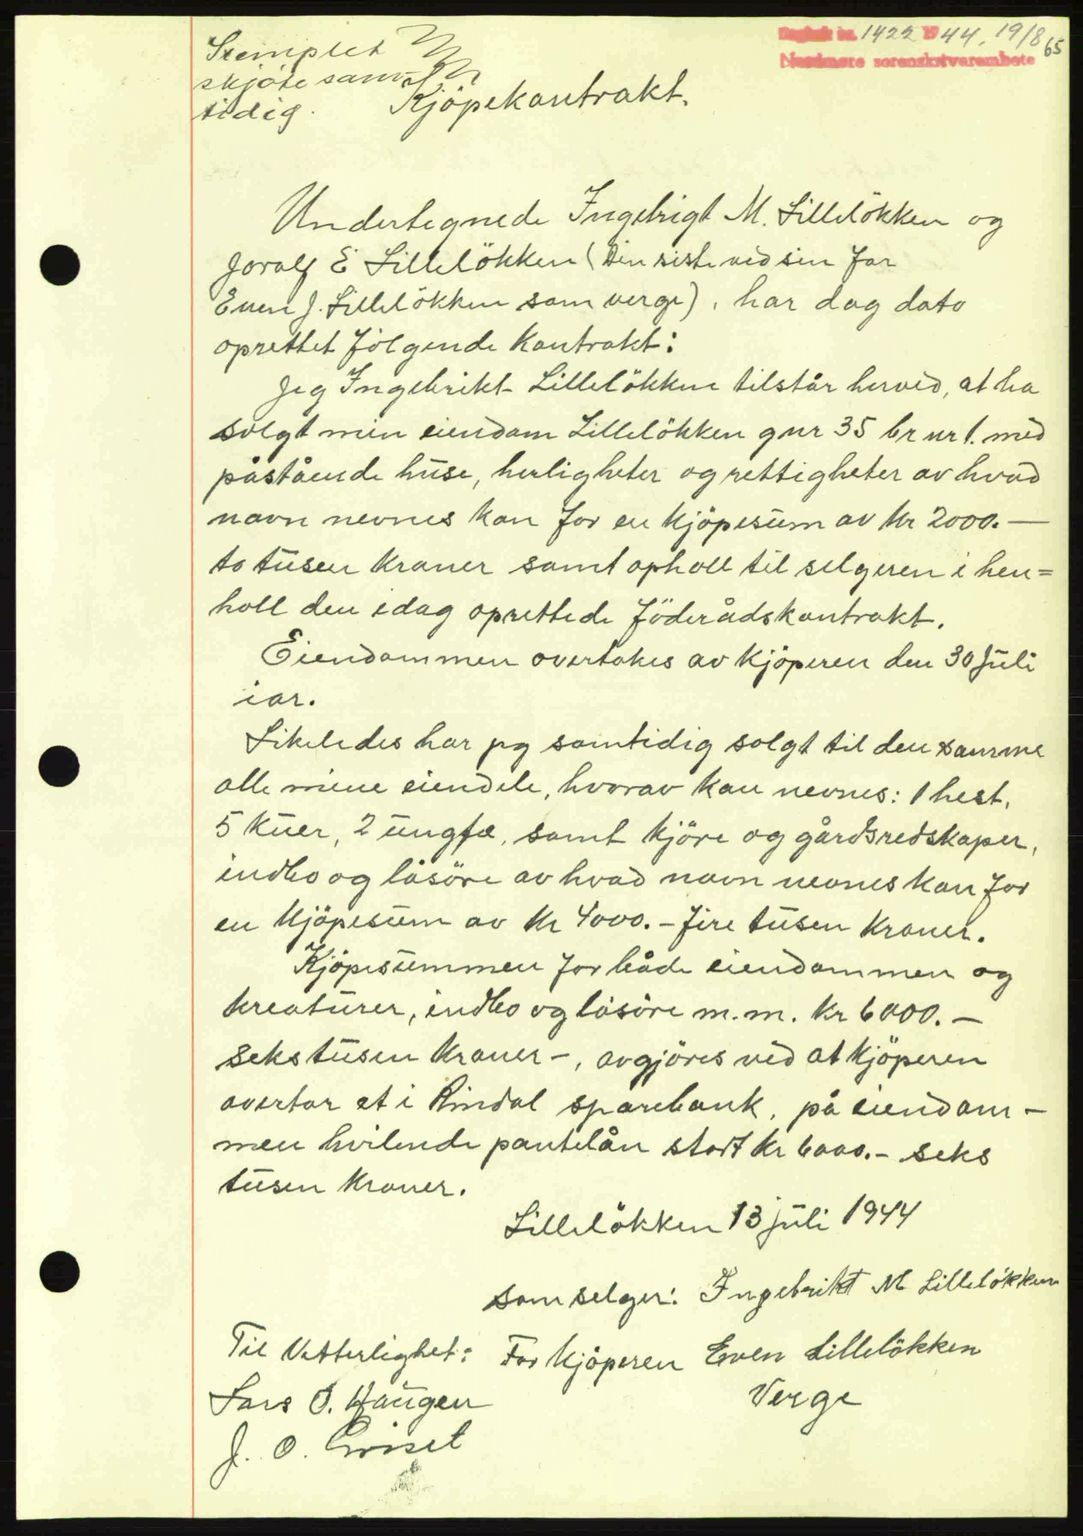 Stemplet
skjöte sam-
tidig.
Dagbok nr. 1422 1944, 19/8 65
Nordmøre sorenskriverembete
Kjöpekontrakt.
Undertegnede Ingebrigt M. Lillelökken og
Joralf E Lillelökken (den siste ved sin far
Even J. Lillelökken som verge), har dag dato
oprettet fölgende Kontrakt:
Jeg Ingebrikt Lillelökken tilstår herved, at ha
solgt min eiendom Lillelökken gnr 35 brnr 1. med
påstående huse, herligheter og rettigheter av hvad
navn nevnes kan for en kjöpesum av Kr 2000.—
to tusen kroner samt opholl til selgeren i hen=
holl den idag oprettede föderådskontrakt.
Eiendommen overtakes av kjöperen den 30 Juli
iar.
Likeledes har jeg samtidig solgt til den samme
alle mine eiendele, hvorav kan nevnes: 1 hest,
5 Kuer, 2 ungfæ, samt kjöre og gårdsredskaper,
indbo og lösöre av hvad navn nevnes kan for
en kjöpesum av Kr 4000.- fire tusen Kroner.
Kjöpesummen for både eiendommen og
kreaturer, indbo og lösöre m.m. Kr 6000.—
seks tusen Kroner-, avgjöres ved at kjöperen
overtar et i Rindal sparebank, på eiendom-
men hvilende pantelån stort Kr 6000.- seks
tusen Kroner.
Lillelökken 13 juli 1944
som selger: Ingebrikt M Lillelökken
Til Vitterlighet: For kjöperen Even Lillelökken
Lars O. Haugen Verge
J. O.